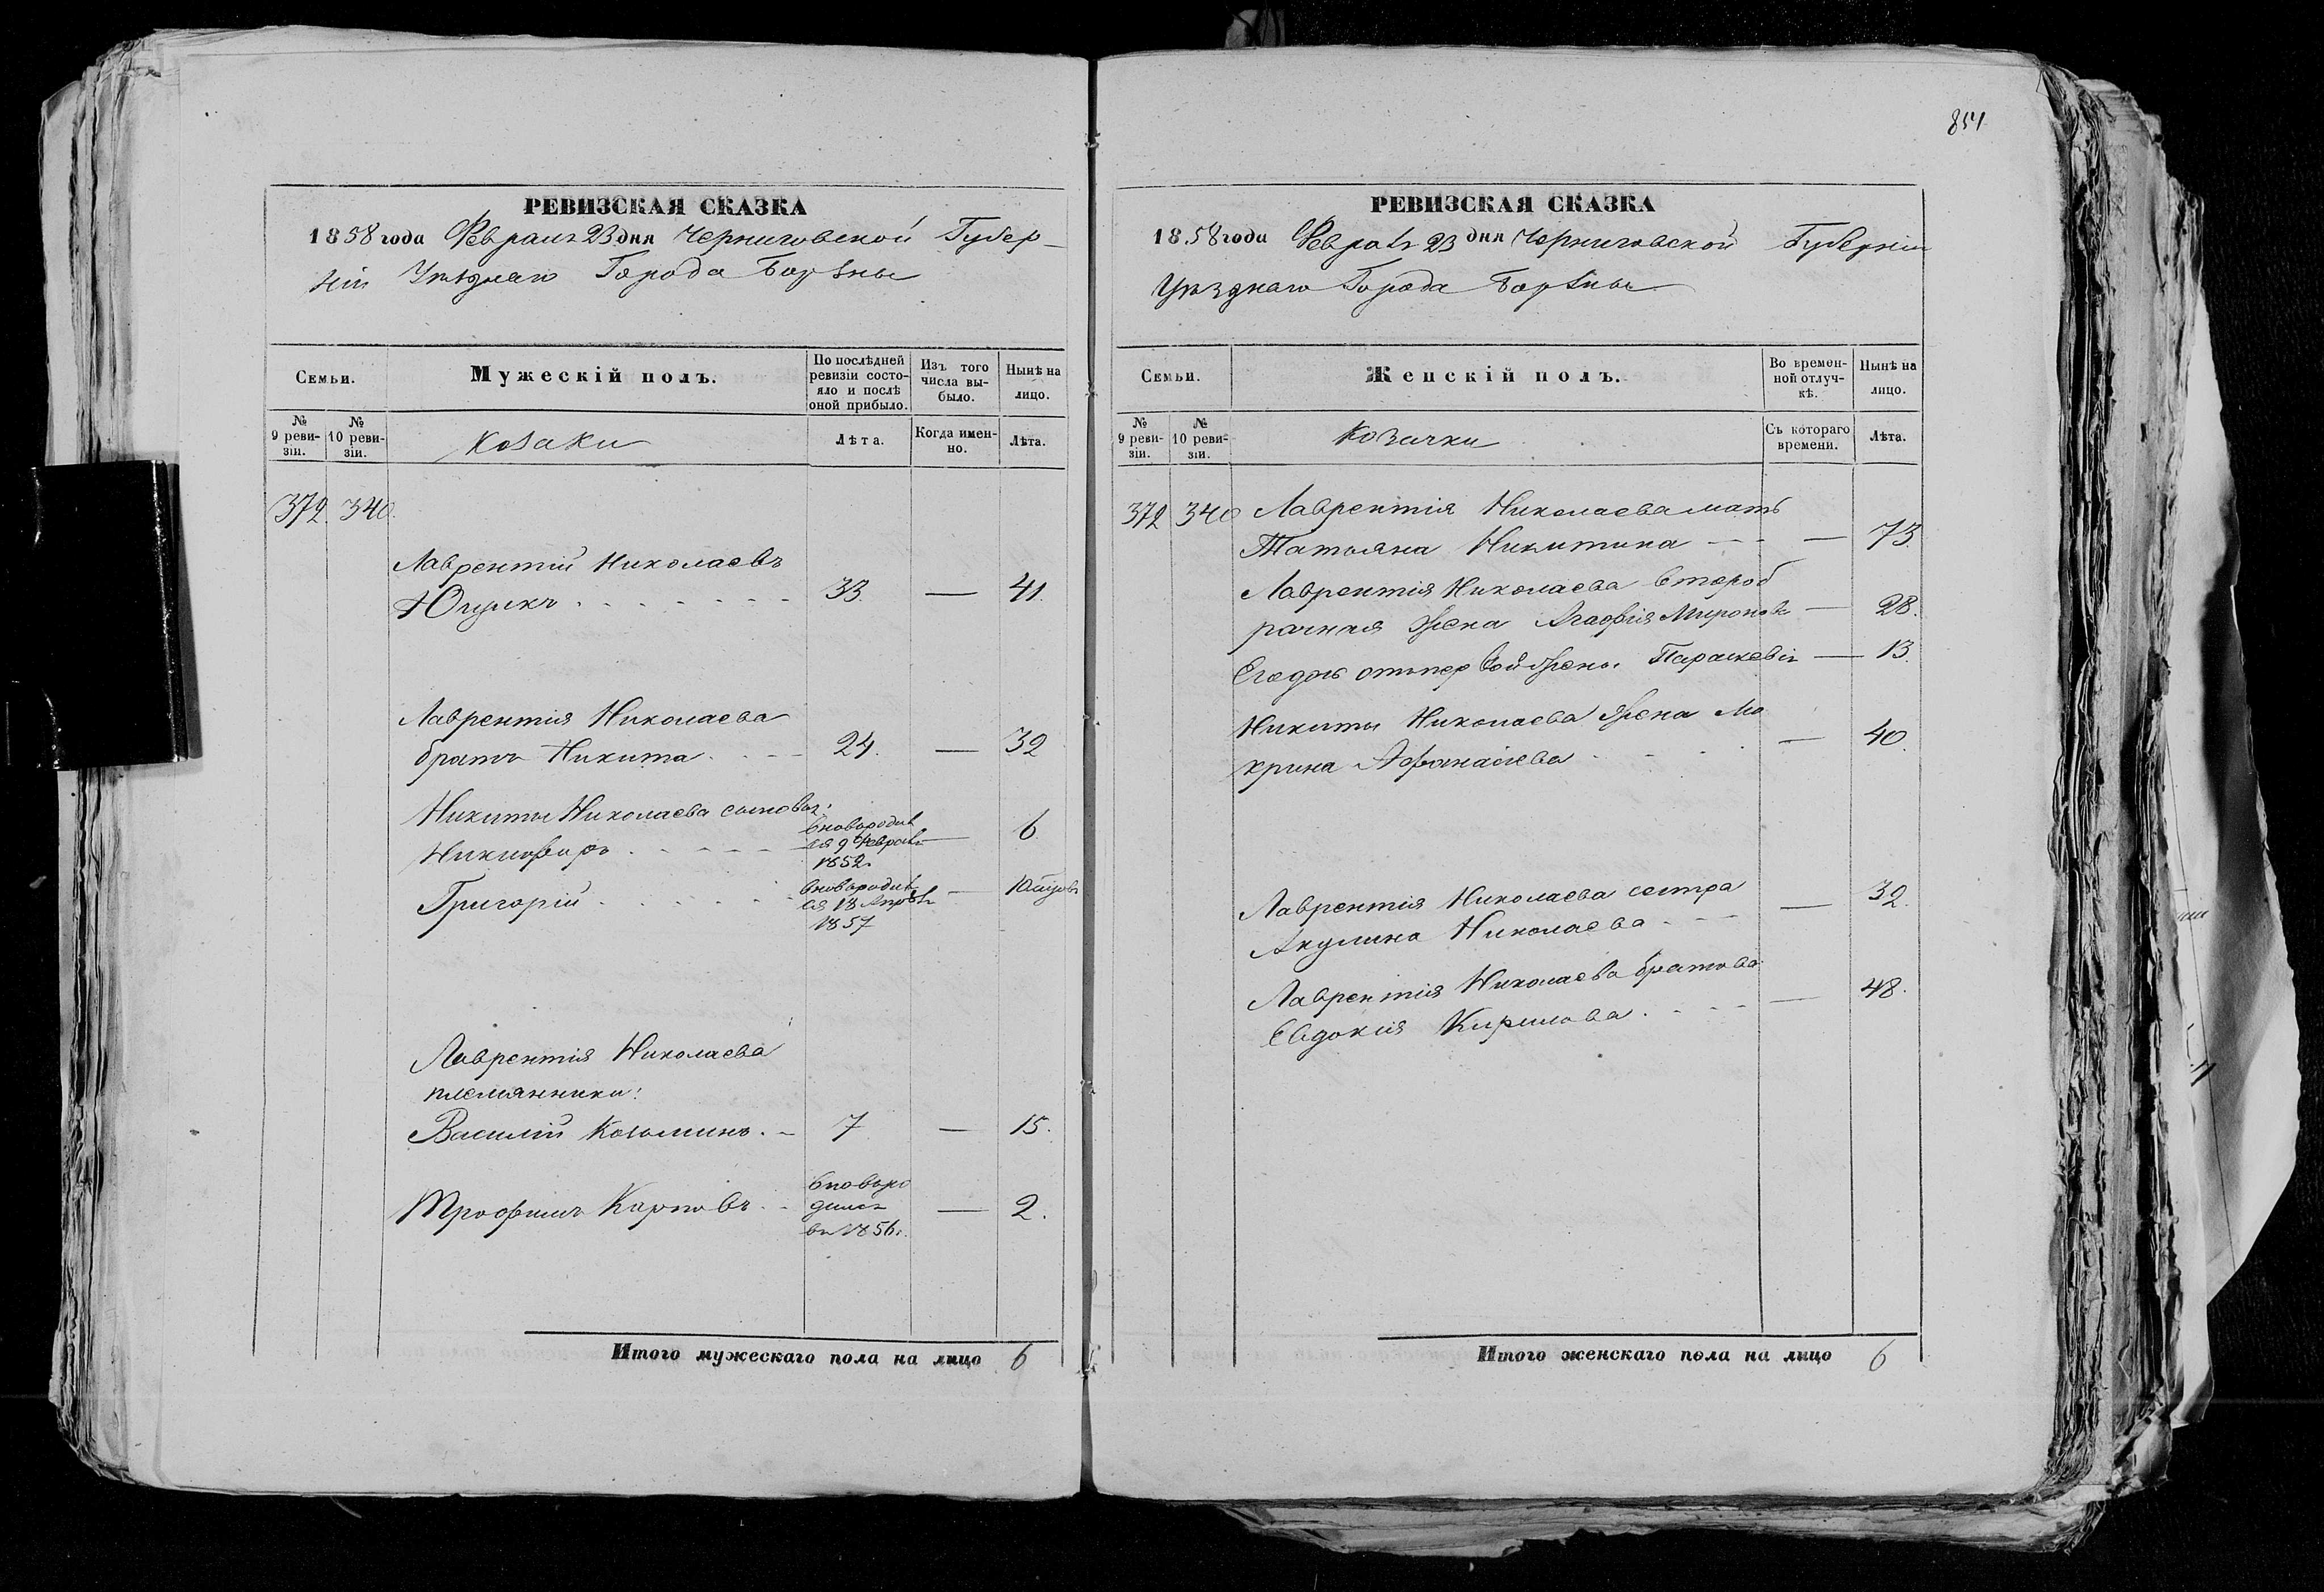 РЕВИЗСКАЯ СКАЗКА
1858 года Февраля 23 дня Черниговской Губер-
ніи Уѣзднаго Города Борзны
Семьи.
Мужескій полъ.
По послѣдней ревизіи состояло и послѣ оной прибыло.
Изъ того числа выбыло.
Нынѣ на лицо.
№ 9 ревизіи.
№ 10 ревизіи.
Козаки
Лѣта.
Когда именно.
Лѣта.
372. 340.
Лаврентій Николаевъ
Ющикъ 33. — 41.
Лаврентія Николаева
братъ Никита 24. — 32
Никиты Николаева сыновья:
Никифоръ
вновьродив
ся 9 Февраля
1852.
— 6
Григорій
вновьродив
ся 18 Апрѣля
1857
—
Лаврентія Николаева
племянники:
Василій Козьминъ. 7 — 15.
Трофимъ Карповъ
вновьро
дился
въ 1856.
— 2.
Итого мужескаго пола на лицо 6
851
РЕВИЗСКАЯ СКАЗКА
1858 года Февраля 23 дня Черниговской Губерніи
Уѣзднаго Города Борзны
Семьи.
Женскій полъ.
Во временной отлучкѣ.
Нынѣ на лицо.
№ 9 ревизіи.
№ 10 ревизіи.
Козачки
Съ котораго времени.
Лѣта.
372 340 Лаврентія Николаева мать
Татьяна Никитина — 73.
Лаврентія Николаева второб
рачная жена Агафія Миронова — 28.
Его дочь отъ первой жены Параскевія — 13.
Никиты Николаева жена Ма
крина Афанасіева — 40.
Лаврентія Николаева сестра
Акулина Николаева — 32.
Лаврентія Николаева братова
Евдокія Кирилова — 48.
Итого женскаго пола на лицо 6